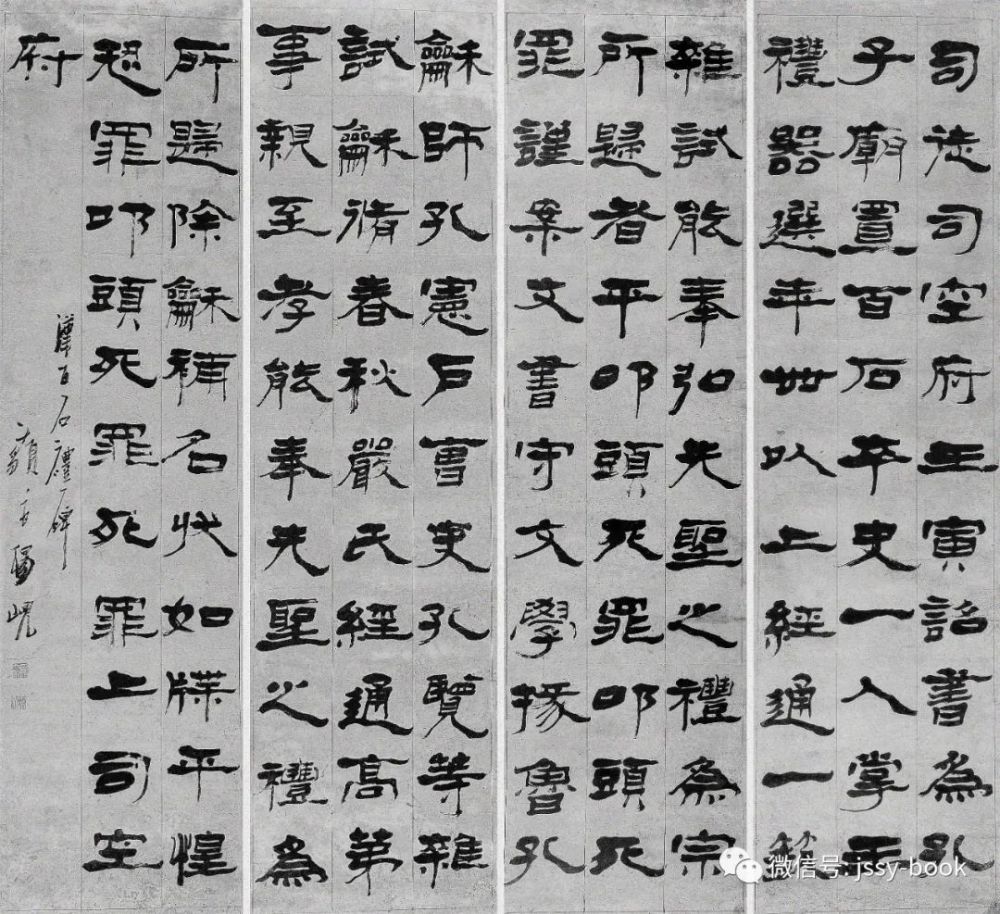 司徒司空府壬寅詔書為孔
子廟置百石卒史一人掌主
禮器選年卌以上經通一蓺
雜試能奉弘先聖之禮為宗
所歸者平叩頭死罪叩頭死
罪謹案文書守文學掾魯孔
龢師孔憲戶曹史孔覽等雜
試龢脩春秋嚴氏經通高第
事親至孝能奉先聖之禮為
所歸除龢補名狀如牒平惶
恐罪叩頭死罪死罪上司空
府
漢百石禮碑
藐翁楊峴
微信号: jssy-book